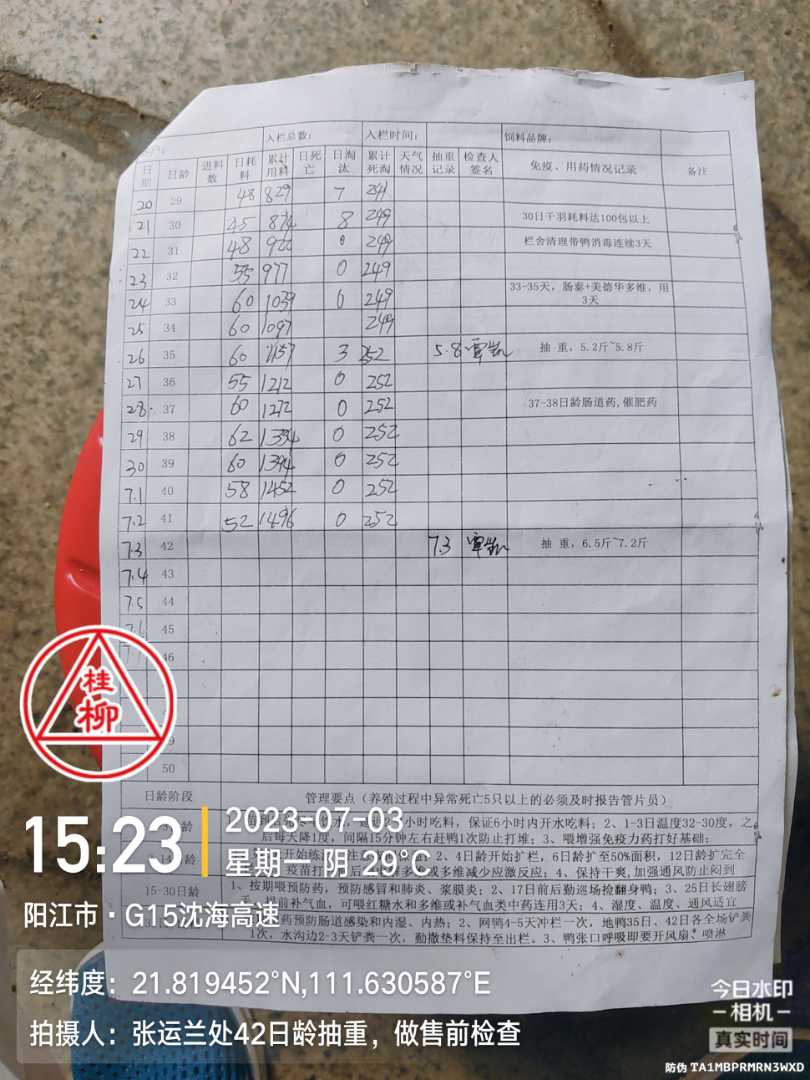 入栏总数： 入栏时间： 饲料品牌：
日期 日龄 进料数 日耗料 累计用料 日死亡 日淘汰 累计死淘 天气情况 抽重记录 检查人签名 免疫、用药情况记录 备注
20 29 48 829 7 241
21 30 45 874 8 249 30日千羽耗料达100包以上
22 31 48 922 0 249 栏舍清理带鸭消毒连续3天
23 32 55 977 0 249
24 33 60 1039 0 249 33-35天，肠泰+美德华多维，用3天
25 34 60 1097 249
26 35 60 1157 3 252 5.8 抽 重，5.2斤~5.8斤
27 36 55 1212 0 252
28 37 60 1272 0 252 37-38日龄肠道药,催肥药
29 38 62 1334 0 252
30 39 60 1394 0 252
7.1 40 58 1452 0 252
7.2 41 52 1496 0 252
7.3 42 7.3 抽 重，6.5斤~7.2斤
7.4 43
7.5 44
7.6 45
46
50
日龄阶段 管理要点（养殖过程中异常死亡5只以上的必须及时报告管片员）
小时吃料，保证6小时内开水吃料；2、1-3日温度32-30度，之
后每天降1度，间隔15分钟左右赶鸭1次防止打堆；3、喂增强免疫力药打好基础；
2、4日龄开始扩栏，6日龄扩至50%面积，12日龄扩完全
多维减少应激反应；4、保持干爽,加强通风防止闷到
15-30日龄 1、按期喂预防药，预防感冒和肺炎、浆膜炎；2、17日前后勤巡场捡翻身鸭；3、25日长翅膀
前补气血，可喂红糖水和多维或补气血类中药连用3天；4、湿度、温度、通风适宜
药预防肠道感染和内湿、内热；2、网鸭4-5天冲栏一次，地鸭35日、42日各全场铲粪
1次，水沟边2-3天铲粪一次，勤撒垫料保持至出栏。3、鸭张口呼吸即要开风扇、喷淋
桂
柳
15:23
2023-07-03
星期一 阴 29°C
阳江市·G15沈海高速
经纬度：21.819452°N,111.630587°E
拍摄人：张运兰处42日龄抽重，做售前检查
今日水印
相机
真实时间
防伪 TA1MBPRMRN3WXD